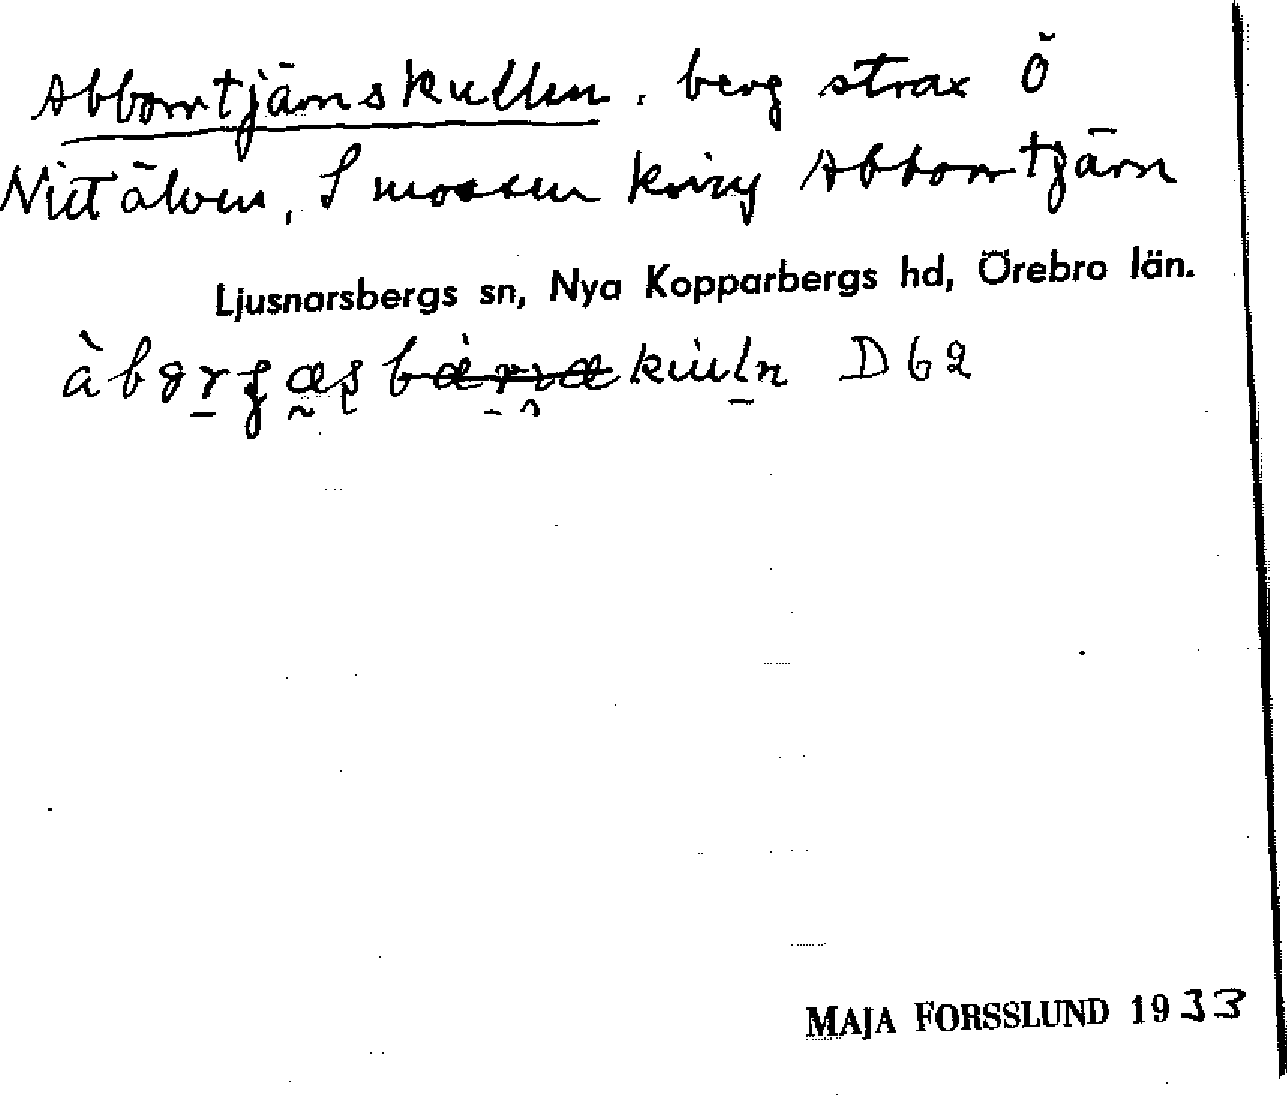 Abborrtjärnskullen, berg strax Ö
Nittälven, S mossen kring Abborrtjärn
Ljusnarsbergs sn, Nya Kopparbergs hd, Örebro län.
D 62
MAJA FORSSLUND 1933